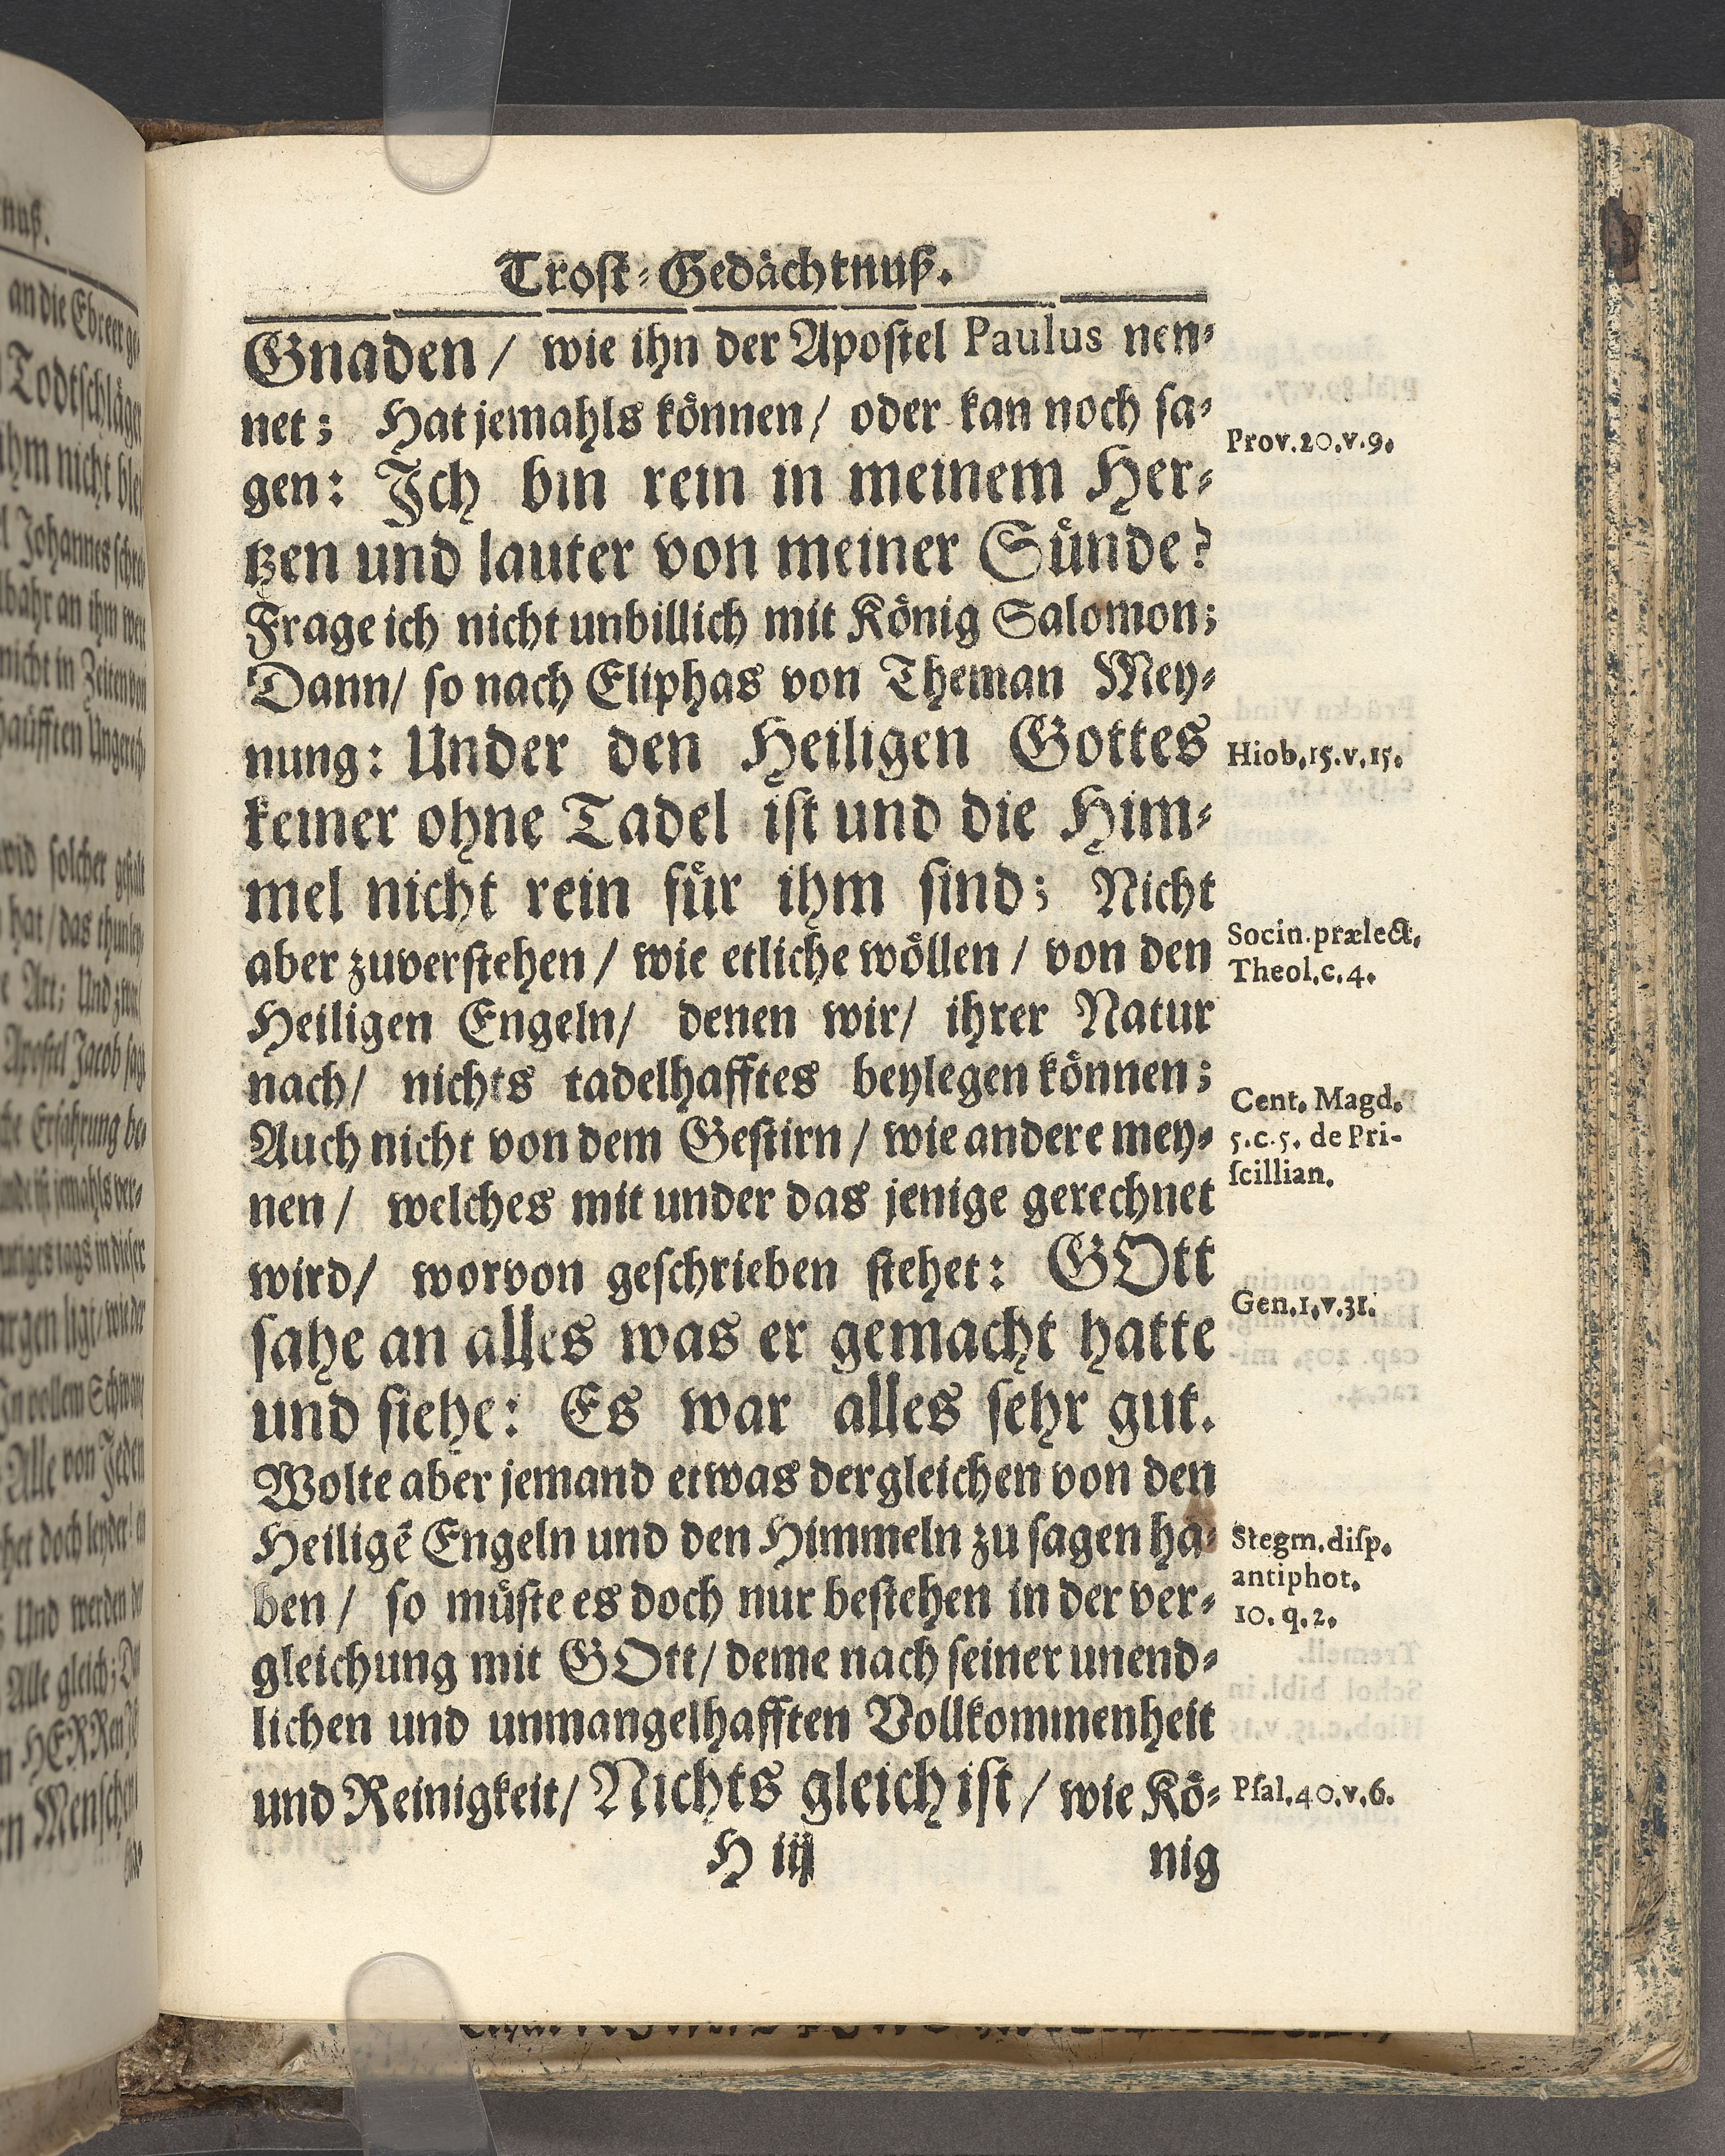 Trost-Gedächtnuß.
Gnaden / wie ihn der Apostel Paulus nen-
net; Hat jemahls können / oder kan noch sa-
gen: Ich bin rein in meinem Her-
tzen und lauter von meiner Sünde?
Frage ich nicht unbillich mit König Salomon;
Dann / so nach Eliphas von Theman Mey-
nung: Under den Heiligen Gottes
keiner ohne Tadel ist und die Him-
mel nicht rein für ihm sind; Nicht
aber zuverstehen / wie etliche wöllen / von den
Heiligen Engeln / denen wir / ihrer Natur
nach / nichts tadelhafftes beylegen können;
Auch nicht von dem Gestirn / wie andere mey-
nen / welches mit under das jenige gerechnet
wird / worvon geschrieben stehet: GOtt
sahe an alles was er gemacht hatte
und siehe: Es war alles sehr gut.
Wolte aber jemand etwas dergleichen von den
Heiligẽ Engeln und den Himmeln zu sagen ha-
ben / so müste es doch nur bestehen in der ver-
gleichung mit GOtt / deme nach seiner unend-
lichen und unmangelhafften Vollkommenheit
und Reinigkeit / Nichts gleich ist / wie Kö-
H iij nig
Prov. 20. v. 9.
Hiob. 15. v. 15.
Socin. prælect.
Theol. c. 4.
Cent. Magd.
5. c. 5. de Pri-
scillian.
Gen. 1. v. 31.
Stegm. disp.
antiphot.
10. q. 2.
Psal. 40. v. 6.